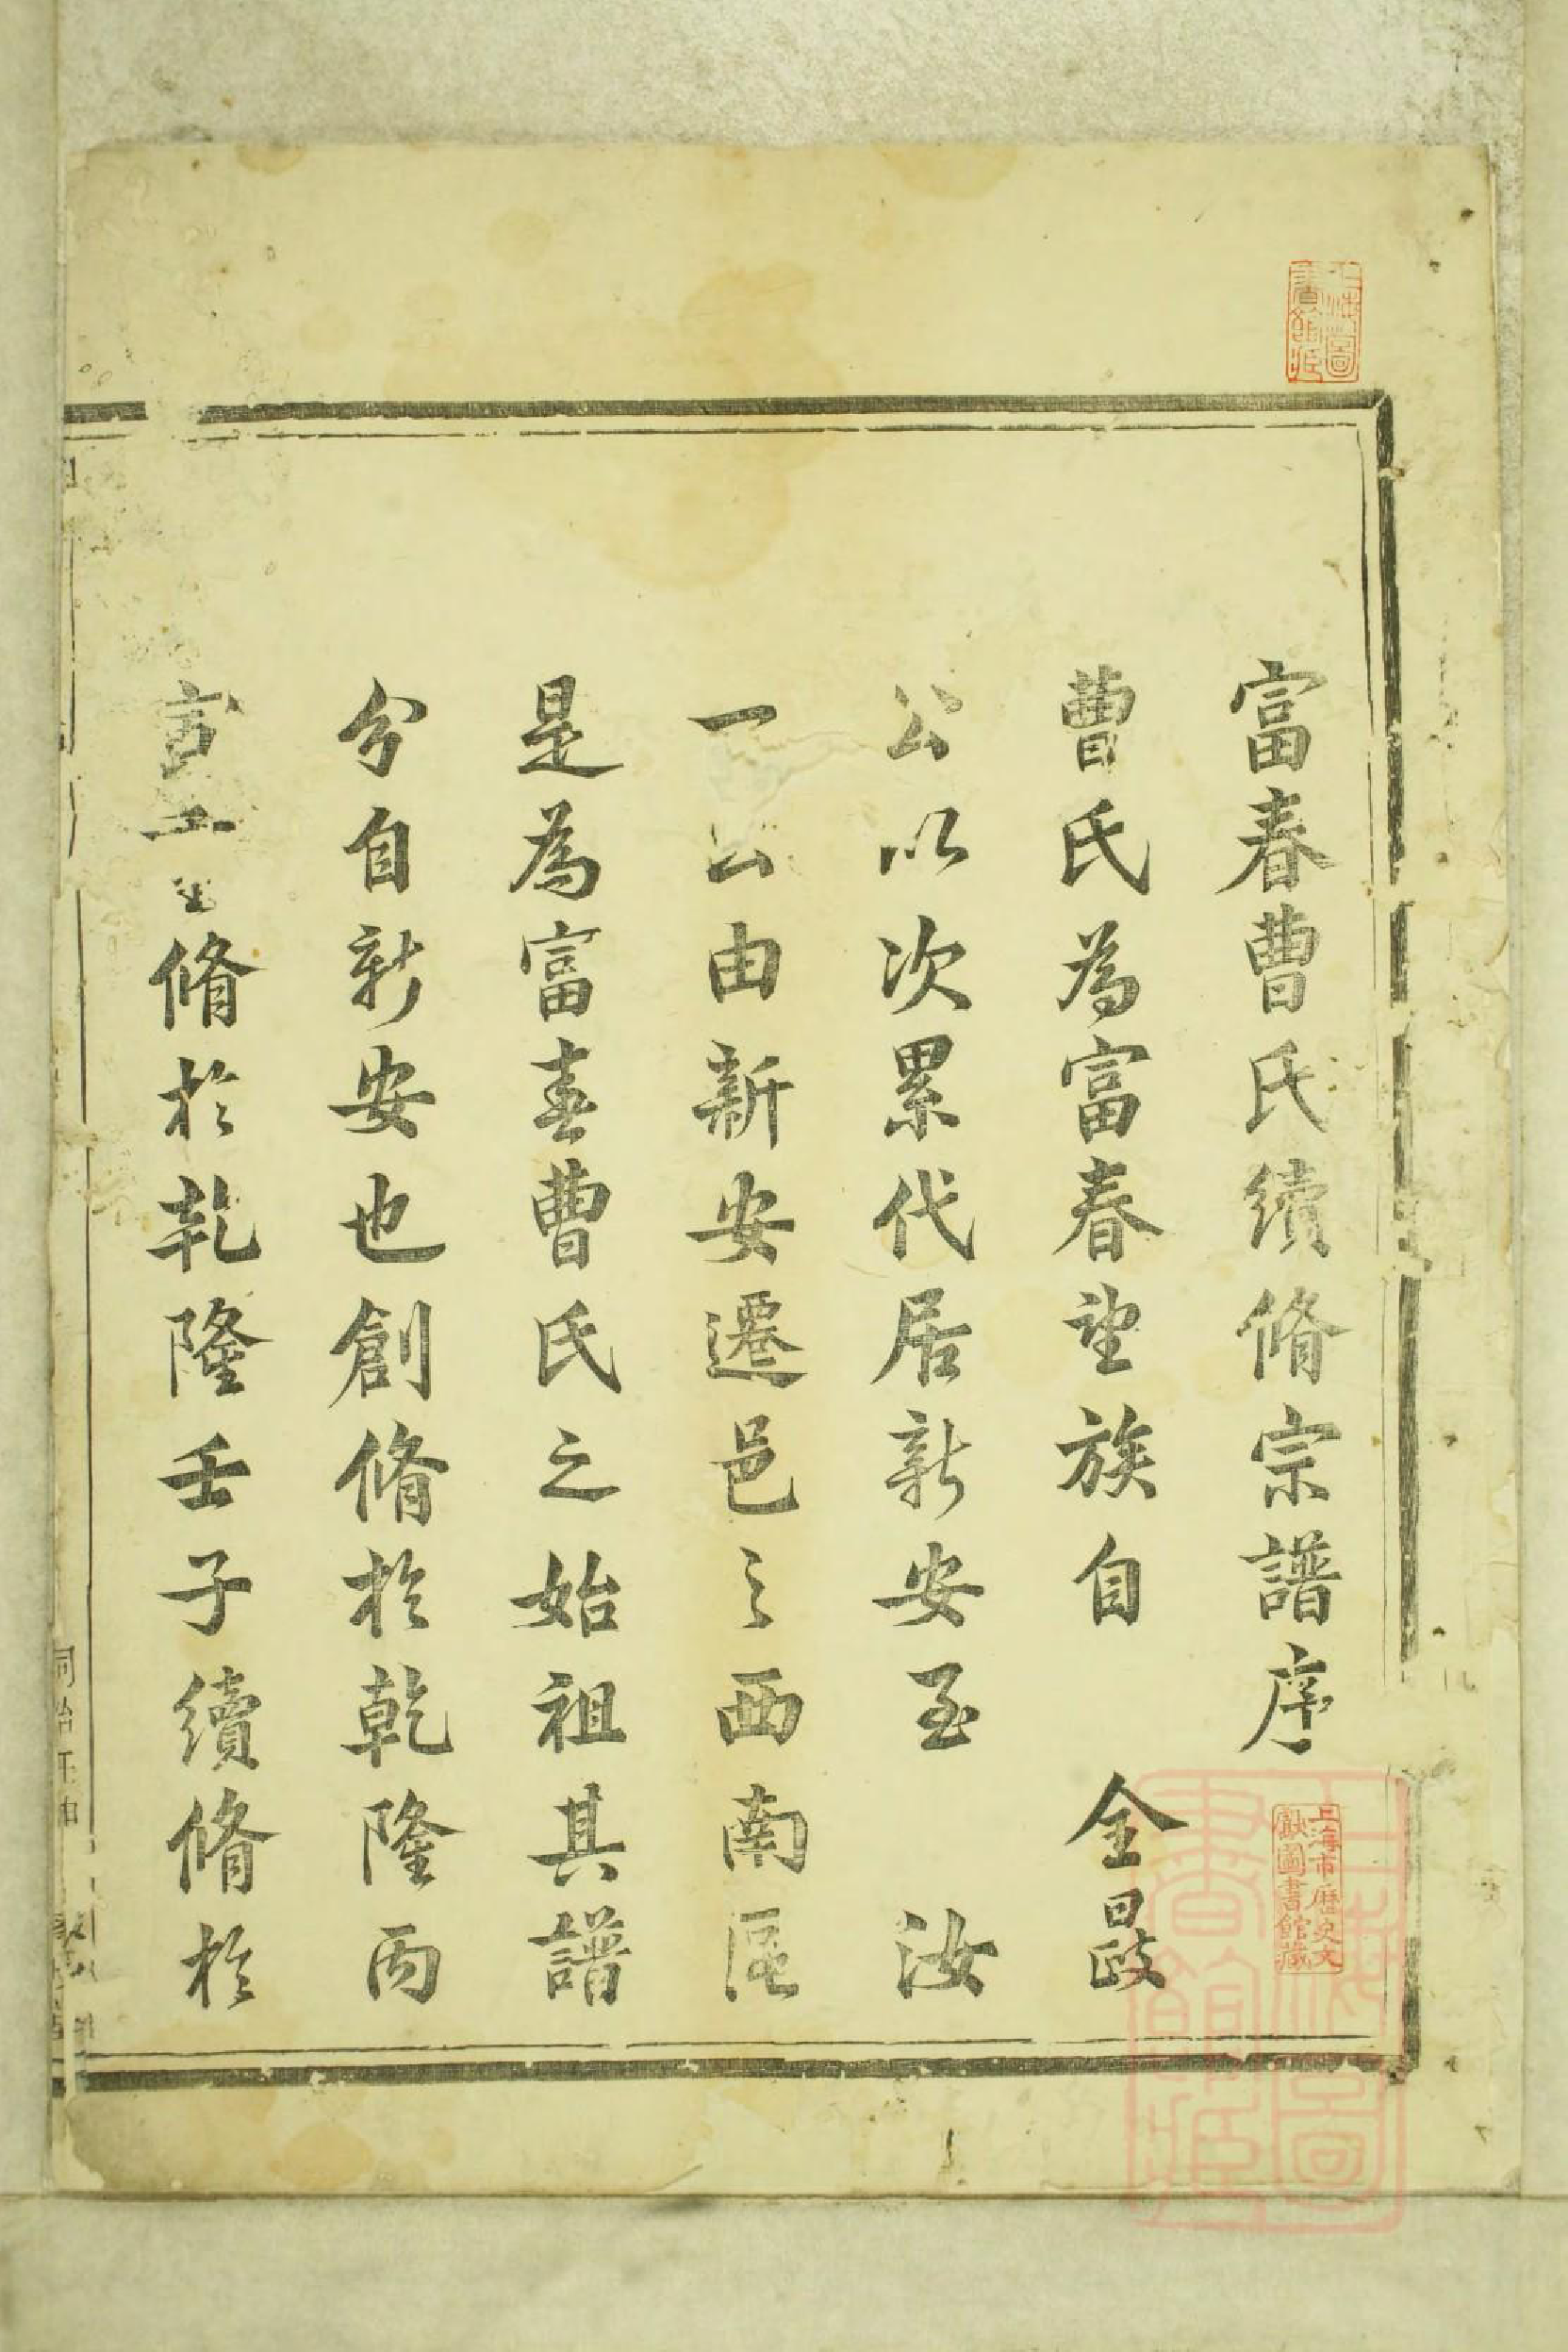 富春曹氏續脩宗譜序
曹氏為富春望族自 全晸
公以次累代居新安至 汝
一公由新安遷邑之西南區
是為富春曹氏之始祖其譜
兮自新安也創脩於乾隆丙
脩於乾隆壬子續脩於
上海圖書館藏
上海市歷史文獻圖書館藏
上海圖書館藏